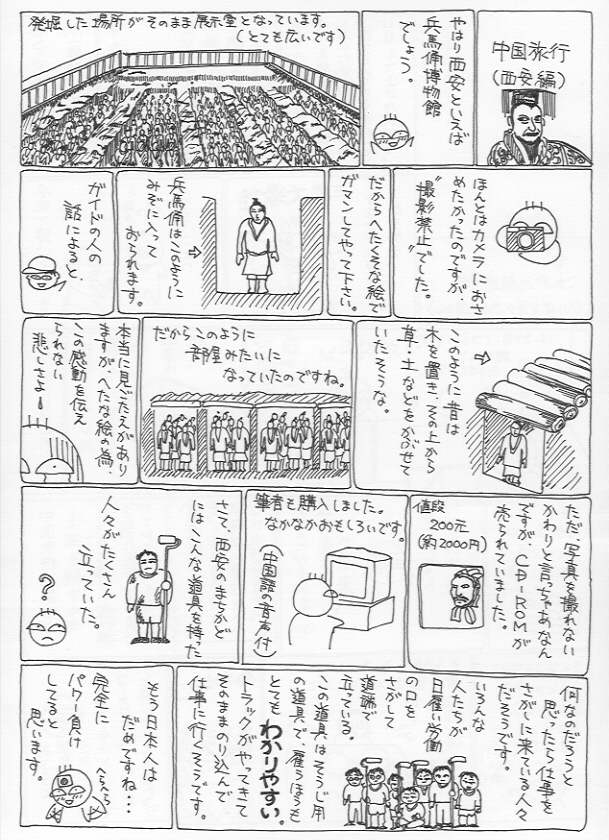 中国旅行
（西安編）
やはり西安といえば
兵馬俑博物館
でしょう。
発掘した場所がそのまま展示堂となっています。
（とても広いです）
ほんとはカメラにおさ
めたかったのですが、
〝撮影禁止〟でした。
だからへたくそな絵で
ガマンしてやって下さい。
兵馬俑はこのように
みぞに入って
おられます。
⇨
ガイドの人の
話によると、
⇨
このように昔は
木を置き、その上から
草・土などをかぶせて
いたそうな。
だからこのように
部屋みたいに
なっていたのですね。
本当に見ごたえがあり
ますが、へたな絵の為、
この感動を伝え
られない
悲しさよ！
ただ、写真を撮れない
かわりと言っちゃあなん
ですが、CD-ROMが
売られていました。
値段
200元
(約2000円)
筆者も購入しました。
なかなかおもしろいです。
（中国語の音声付）
さて、西安のまちかど
にはこんな道具を持った
人々がたくさん
立っていた。
？
何なのだろうと
思ったら仕事を
さがしに来ている人々
だそうです。
いろんな
人たちが
日雇い労働
の口を
さがして
道端で
立っている。
この道具はそうじ用
の道具で、雇うほうも
とてもわかりやすい。
トラックがやってきて
そのままのり込んで
仕事に行くそうです。
もう日本人は
だめですね…
完全に
パワー負け
してると
思います。
へらへら